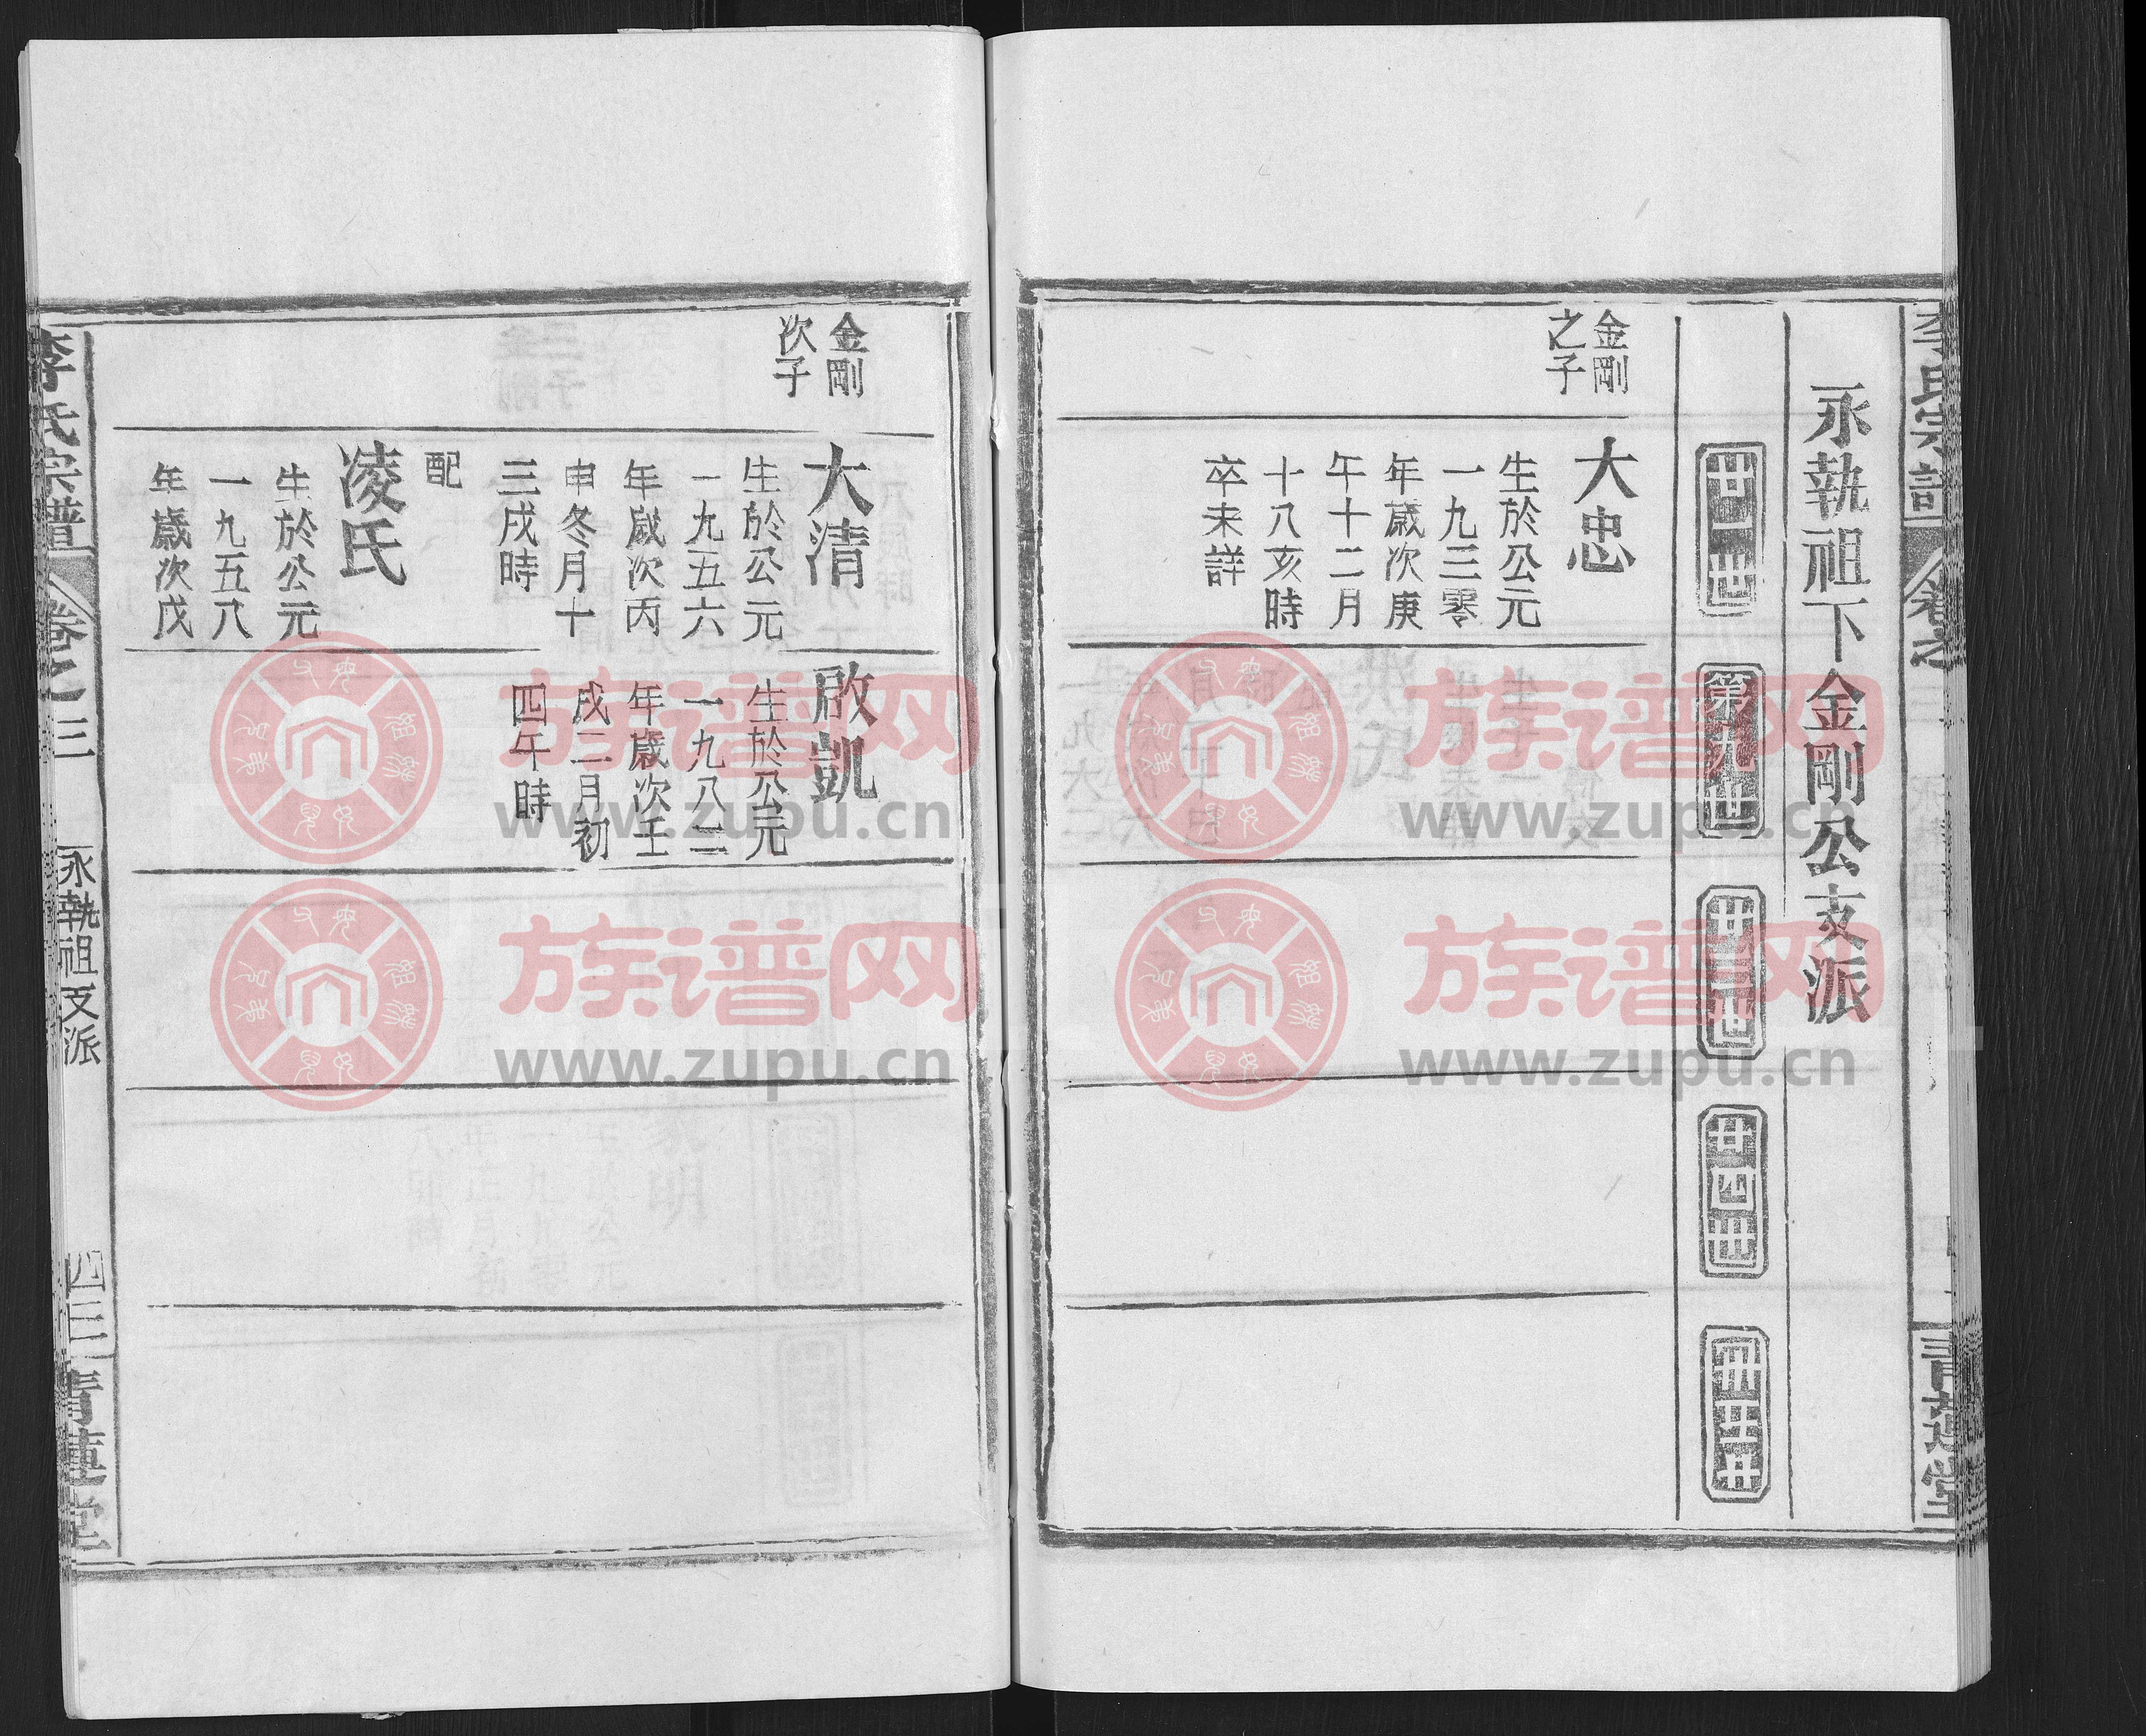 永執祖下金剛公支派
廿一世
第九世
廿三世
廿四世
金剛
之子
大忠
生於公元
一九三零
年歲次庚
午十二月
十八亥時
卒未詳
金剛
次子
大清
生於公元
一九五六
年歲次丙
申冬月十
三戌時
配
凌氏
生於公元
一九五八
年歲次戊
啟凱
生於公元
一九八二
年歲次壬
戌二月初
四午時
李氏宗譜
卷之三
永執祖支派
四三
青蓮堂
族谱网
www.zupu.cn
族谱网
www.zupu.cn
族谱网
www.zupu.cn
族谱网
www.zupu.cn